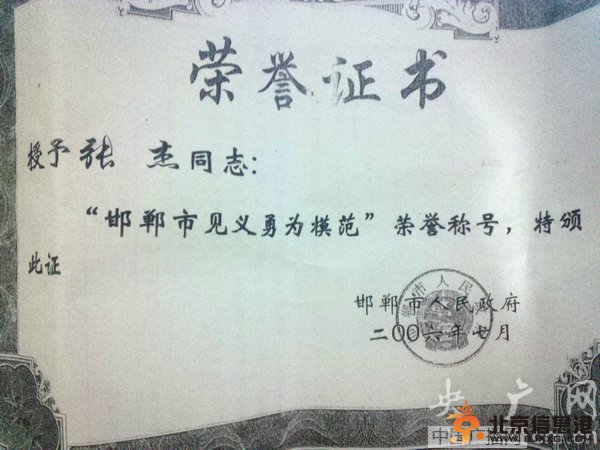 荣誉证书
授予张 杰同志：
“邯郸市见义勇为模范”荣誉称号，特颁
此证
邯郸市人民政府
二〇〇六年七月
央广网
北京信息港